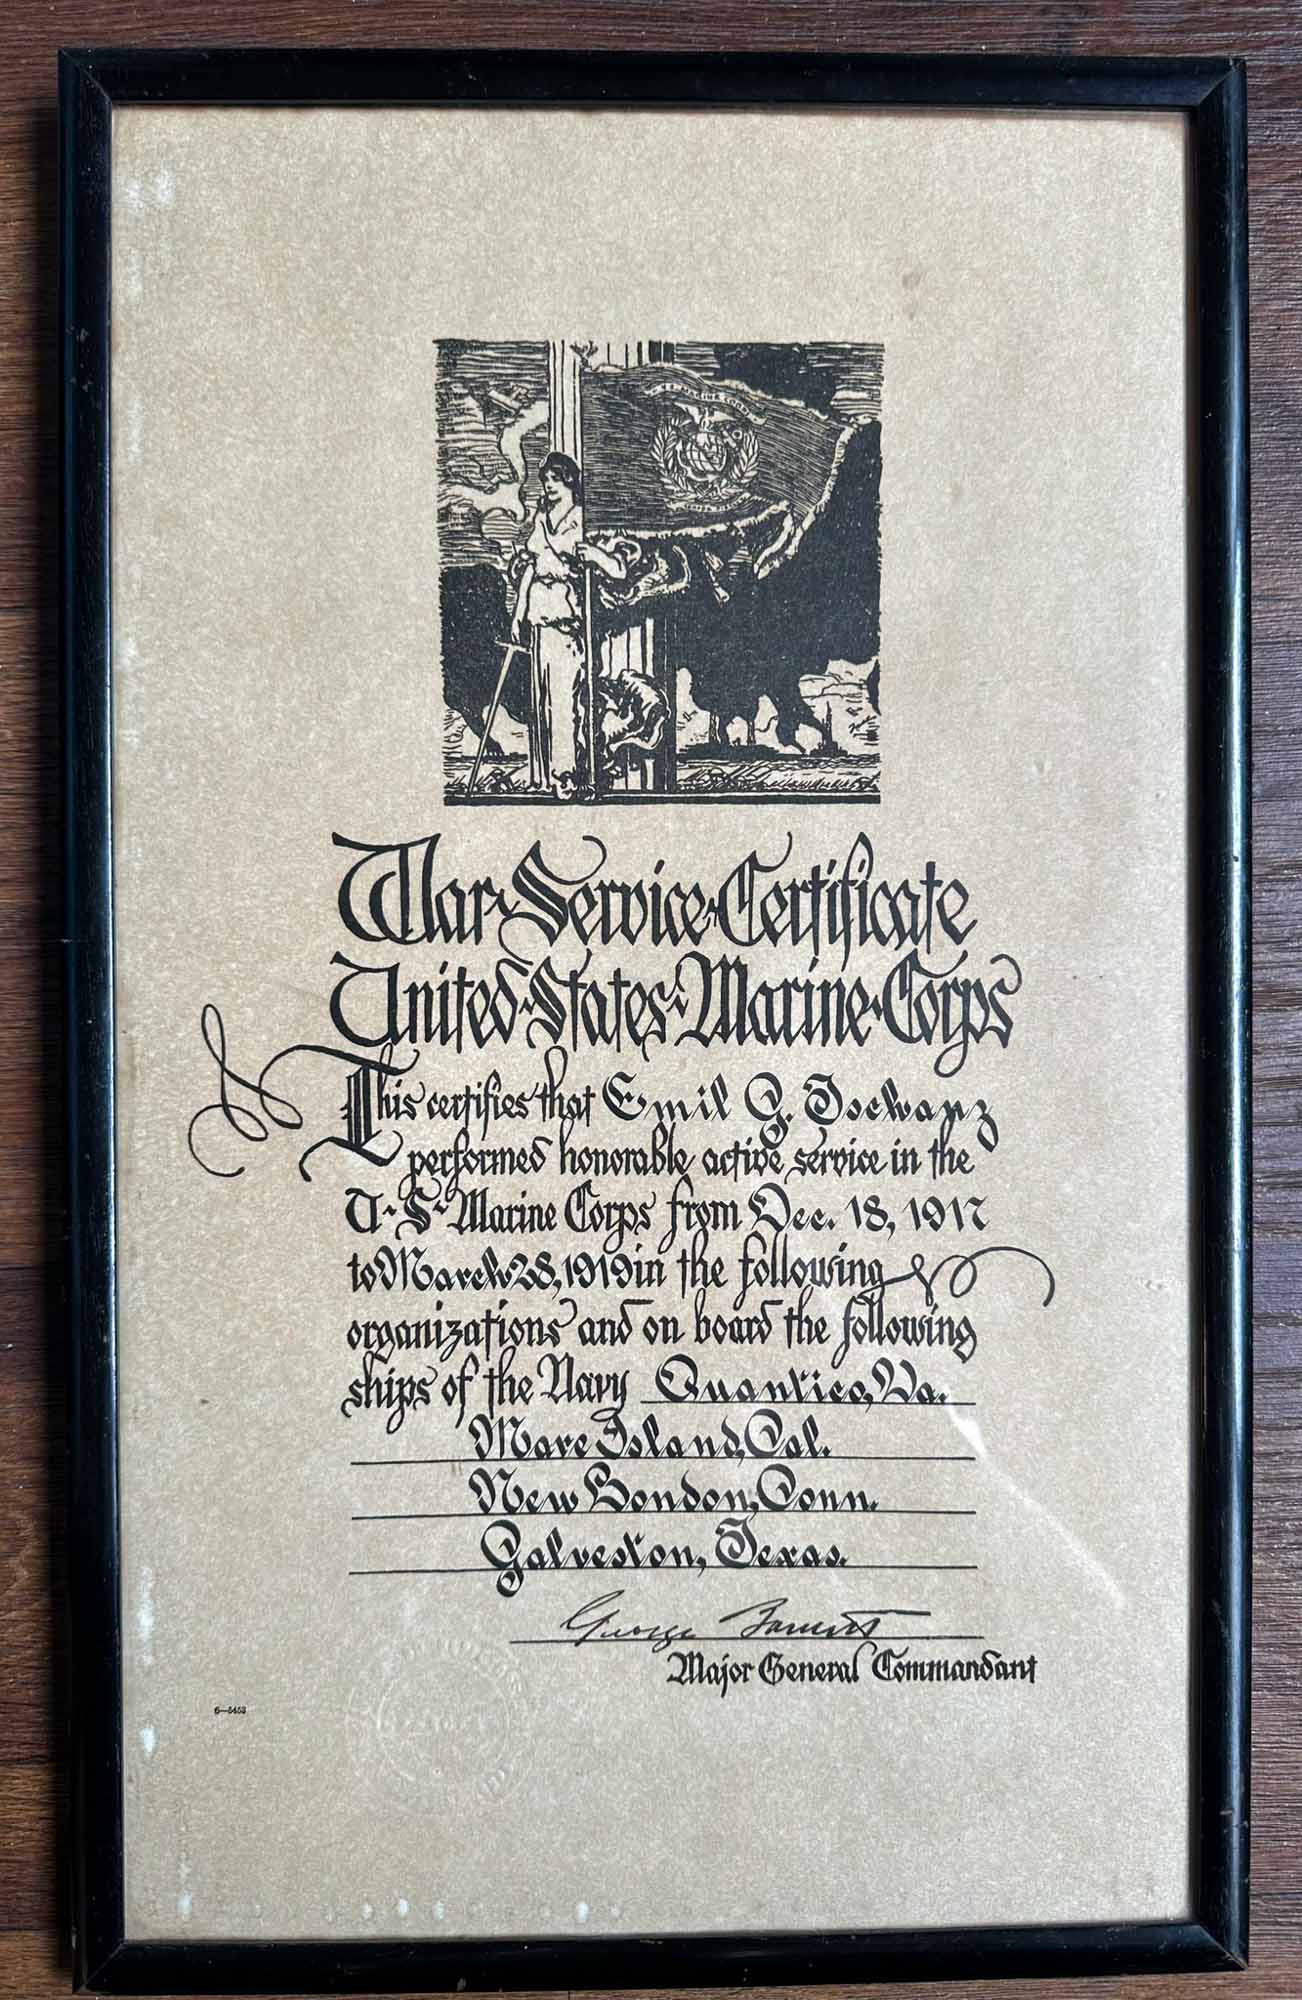 U.S. MARINE CORPS
War Service Certificate
United States Marine Corps
This certifies that Emil G. Tschanz
performed honorable active service in the
U-S-Marine Corps from Dec. 18, 1917
to March 28, 1919 in the following
organizations and on board the following
ships of the Navy Quantico, Va.
Mare Island, Cal.
New London, Conn.
Galveston, Texas.
George Barnett
Major General Commandant
6—5453